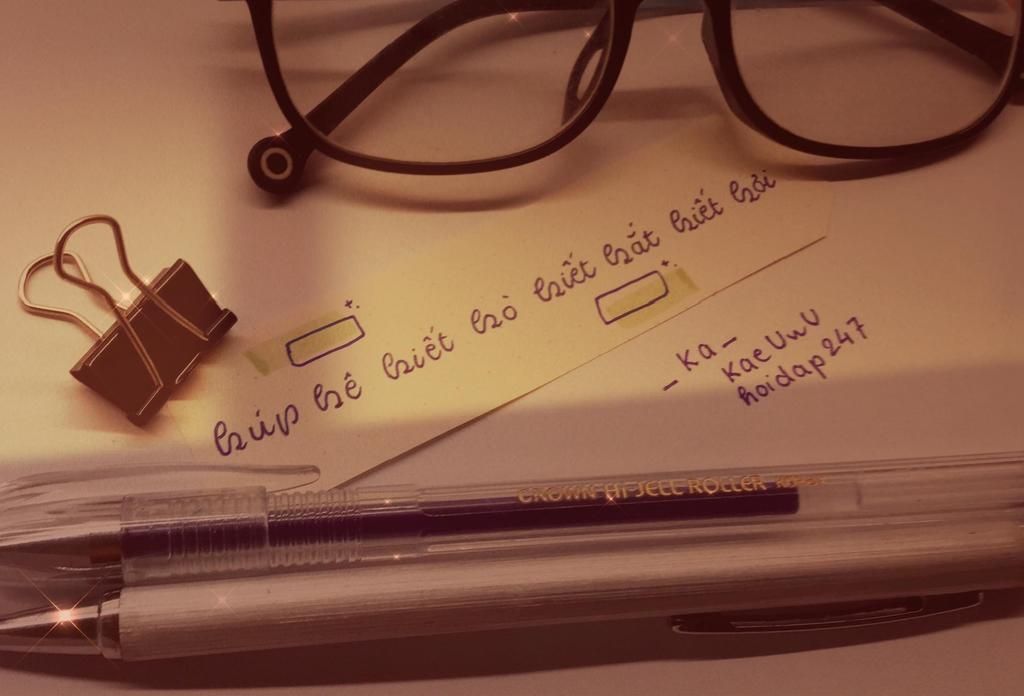 búp bê biết bò biết bắt biết bơi
- Ka -
Kae UwU
hoidap247
CROWN HI-JELL ROLLER